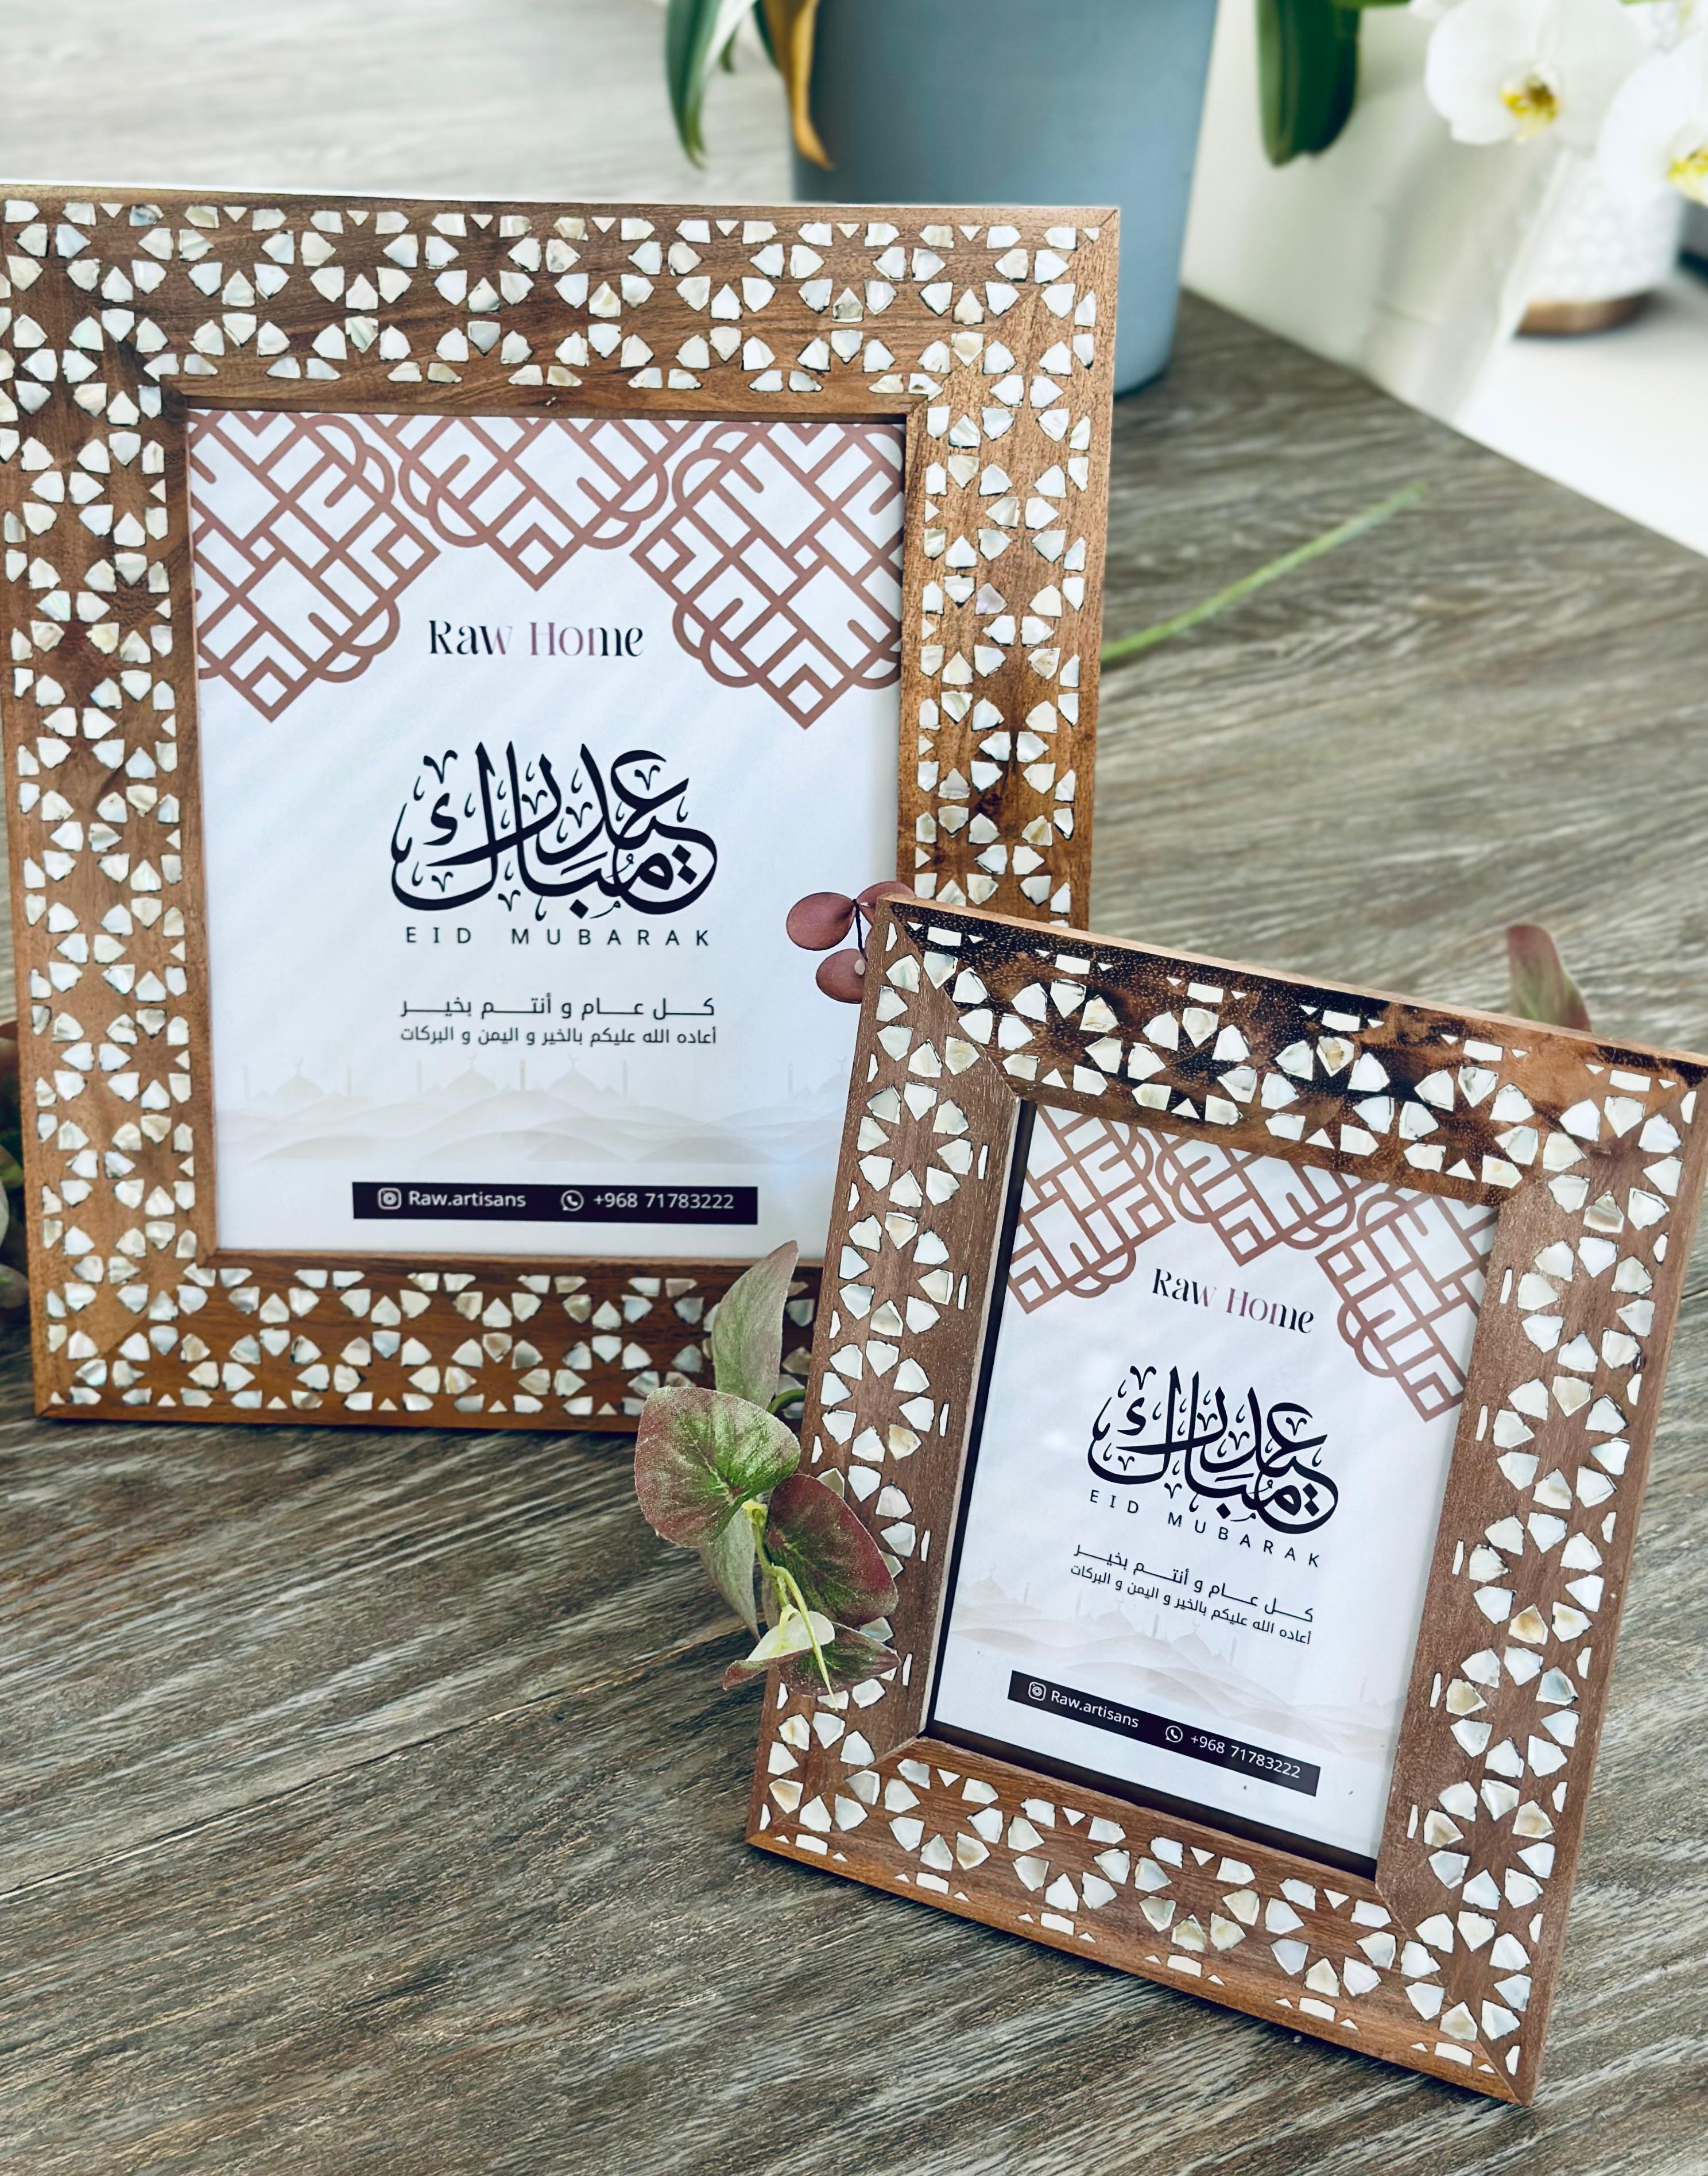 Raw Home
عيد مبارك
EID MUBARAK
كـــل عـــام و أنتـــم بخيـــر
أعاده الله عليكم بالخير و اليمن و البركات
Raw.artisans +968 71783222
Raw Home
عيد مبارك
EID MUBARAK
كـــل عـــام و أنتـــم بخيـــر
أعاده الله عليكم بالخير و اليمن و البركات
Raw.artisans +968 71783222